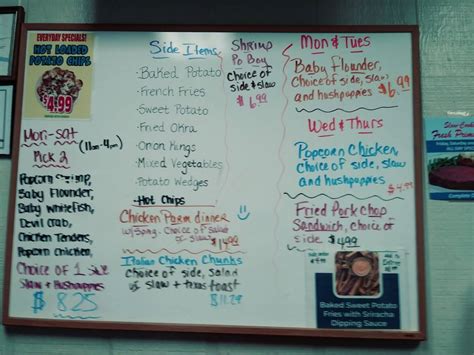 EVERYDAY SPECIALS!
HOT LOADED
POTATO CHIPS
$4.99
Mon-Sat
(11am-4pm)
Pick 2
Popcorn Shrimp,
Baby Flounder,
Baby Whitefish,
Devil Crab,
Chicken Tenders,
Popcorn Chicken,
Choice of 1 Side
Slaw & Hushpuppies
$8.25
Side Items
-Baked Potato
-French Fries
-Sweet Potato
-Fried Okra
-Onion Rings
-Mixed Vegetables
-Potato Wedges
-Hot Chips
Chicken Parm dinner
Choice of Salad
or Slaw
Italian Chicken Chunks
choice of side, Salad
or slaw + texas toast
$11.29
Shrimp
Po Boy
Choice of
side & slaw
$6.99
Mon & Tues
Baby Flounder,
Choice of side, slaw
and hushpuppies
$6.99
Wed & Thurs
Popcorn Chicken,
choice of side, slaw
and hushpuppies
Fried Pork Chop
Sandwich, Choice of
side $4.99
Baked Sweet Potato
Fries with Sriracha
Dipping Sauce
Fresh